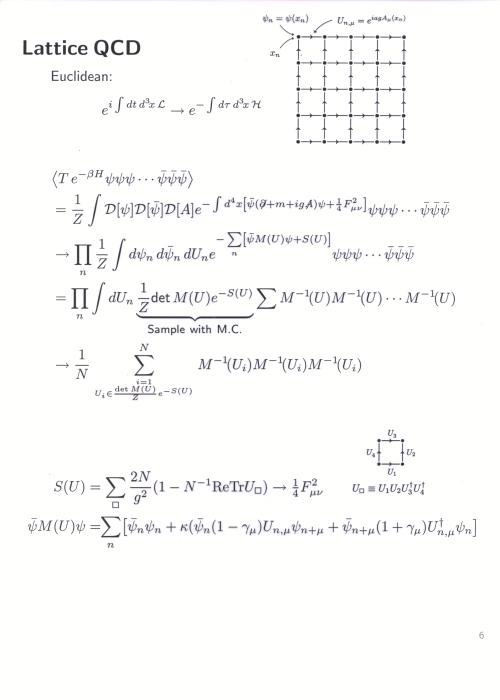 Lattice QCD
ψₙ = ψ(xₙ)
Uₙ,μ = e^{iagAμ(xₙ)}
xₙ
Euclidean:
e^{i∫dt d³x ℒ} → e^{−∫dτ d³x ℋ}
⟨T e^{−βH} ψψψ ⋯ ψ̄ψ̄ψ̄⟩
= 1/Z ∫ 𝒟[ψ]𝒟[ψ̄]𝒟[A] e^{−∫d⁴x[ψ̄(∂̸+m+igA̸)ψ+¼F²μν]} ψψψ ⋯ ψ̄ψ̄ψ̄
→ ∏ₙ 1/Z ∫ dψₙ dψ̄ₙ dUₙ e^{−∑ₙ[ψ̄M(U)ψ+S(U)]} ψψψ ⋯ ψ̄ψ̄ψ̄
= ∏ₙ ∫ dUₙ 1/Z det M(U)e^{−S(U)} ∑ M⁻¹(U)M⁻¹(U) ⋯ M⁻¹(U)
Sample with M.C.
→ 1/N ∑_{i=1, Uᵢ∈ (det M(U)/Z) e^{−S(U)}}^{N} M⁻¹(Uᵢ)M⁻¹(Uᵢ)M⁻¹(Uᵢ)
U₃
U₄ U₂
U₁
S(U) = ∑_□ 2N/g² (1 − N⁻¹ReTrU_□) → ¼F²μν
U_□ ≡ U₁U₂U₃†U₄†
ψ̄M(U)ψ = ∑ₙ [ψ̄ₙψₙ + κ(ψ̄ₙ(1 − γμ)Uₙ,μψₙ₊μ + ψ̄ₙ₊μ(1 + γμ)U†ₙ,μψₙ]
6